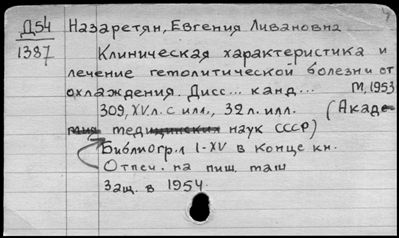 Д54 Назаретян, Евгения Ливановна
1387 Клиническая характеристика и
лечение гемолитической болезни от
охлаждения. Дисс... канд... М, 1953
309, XV л. с илл., 32 л. илл. (Акаде-
мия медицинских наук СССР)
Библиогр. л I-XV в конце кн.
Отпеч. на пиш. маш
Защ. в 1954.